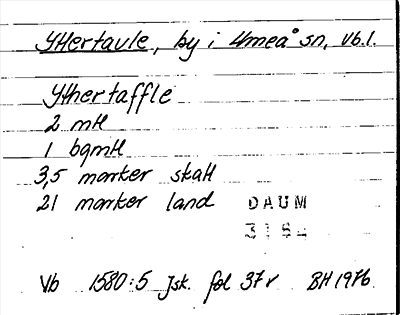 Yttertavle, by i Umeå sn, Vb.l.
Ythertaffle
2 mtl
1 bgmtl
3,5 marker skatt
21 marker land DAUM
3184
Vb 1580:5 Jsk. fol 37v BH 1976.